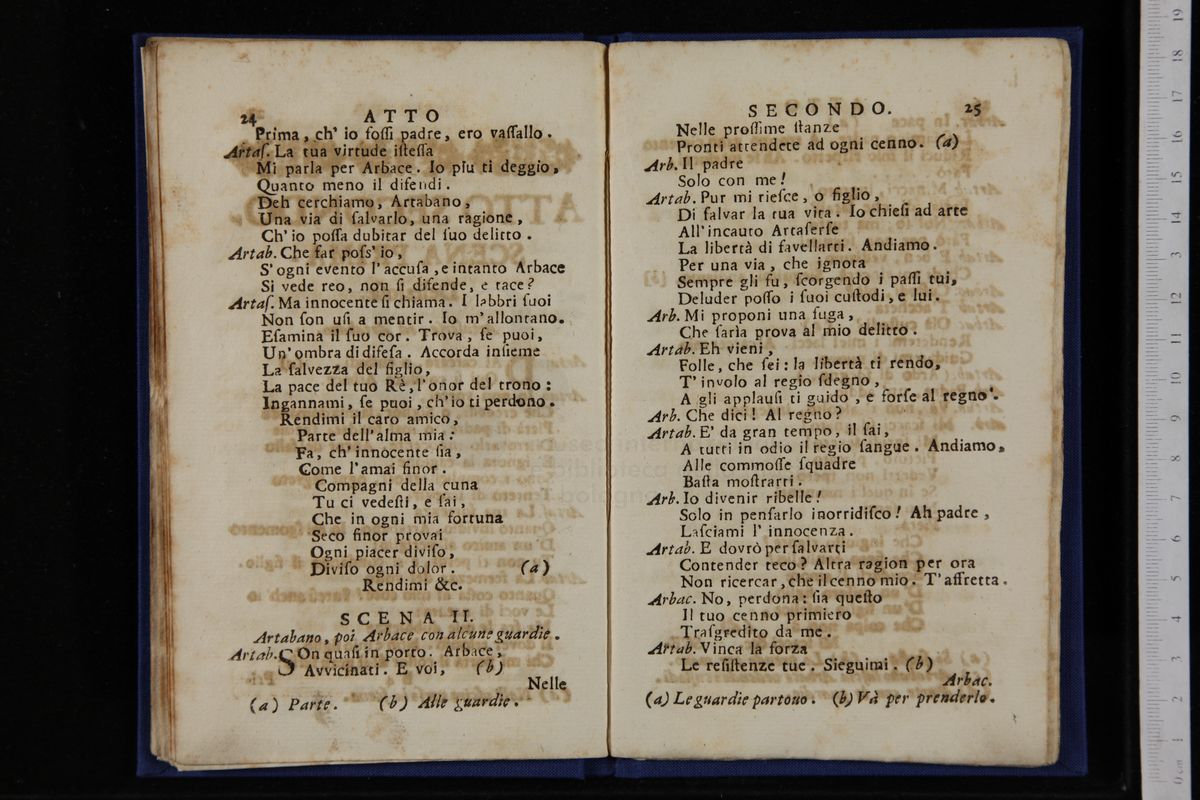 24 ATTO
Prima, ch' io foſſi padre, ero vaſſallo.
Artaſ. La tua virtude iſteſſa
Mi parla per Arbace. Io più ti deggio,
Quanto meno il difendi.
Deh cerchiamo, Artabano,
Una via di ſalvarlo, una ragione,
Ch' io poſſa dubitar del ſuo delitto.
Artab. Che far poſs' io,
S' ogni evento l' accuſa, e intanto Arbace
Si vede reo, non ſi difende, e tace?
Artaſ. Ma innocente ſi chiama. I labbri ſuoi
Non ſon uſi a mentir. Io m' allontano.
Eſamina il ſuo cor. Trova, ſe puoi,
Un' ombra di difeſa. Accorda inſieme
La ſalvezza del figlio,
La pace del tuo Rè, l' onor del trono:
Ingannami, ſe puoi, ch' io ti perdono.
Rendimi il caro amico,
Parte dell' alma mia:
Fa, ch' innocente ſia,
Come l' amai finor.
Compagni della cuna
Tu ci vedeſti, e ſai,
Che in ogni mia fortuna
Seco finor provai
Ogni piacer diviſo,
Diviſo ogni dolor. (a)
Rendimi &c.
SCENA II.
Artabano, poi Arbace con alcune guardie.
Artab. SOn quaſi in porto. Arbace,
Avvicinati. E voi, (b)
Nelle
(a) Parte. (b) Alle guardie.
SECONDO. 25
Nelle proſſime ſtanze
Pronti attendete ad ogni cenno. (a)
Arb. Il padre
Solo con me!
Artab. Pur mi rieſce, o figlio,
Di ſalvar la tua vita. Io chieſi ad arte
All' incauto Artaſerſe
La libertà di favellarti. Andiamo.
Per una via, che ignota
Sempre gli fu, ſcorgendo i paſſi tui,
Deluder poſſo i ſuoi cuſtodi, e lui.
Arb. Mi proponi una fuga,
Che ſarìa prova al mio delitto.
Artab. Eh vieni,
Folle, che ſei: la libertà ti rendo,
T' involo al regio ſdegno,
A gli applauſi ti guido, e forſe al regno.
Arb. Che dici! Al regno?
Artab. E' da gran tempo, il ſai,
A tutti in odio il regio ſangue. Andiamo,
Alle commoſſe ſquadre
Baſta moſtrarti.
Arb. Io divenir ribelle!
Solo in penſarlo inorridiſco! Ah padre,
Laſciami l' innocenza.
Artab. E dovrò per ſalvarti
Contender teco? Altra ragion per ora
Non ricercar, che il cenno mio. T' affretta.
Arbac. No, perdona: ſia queſto
Il tuo cenno primiero
Traſgredito da me.
Artab. Vinca la forza
Le reſiſtenze tue. Sieguimi. (b)
Arbac.
(a) Le guardie partono. (b) Và per prenderlo.